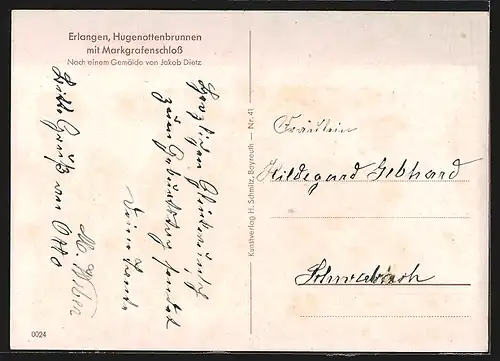 Erlangen, Hugenottenbrunnen
mit Markgrafenschloß
Nach einem Gemälde von Jakob Dietz
Herzlichen Glückwunsch
zum Geburtstag sendet
Deine Tante
M. Weber
Bitte Gruß von Otto
Kunstverlag H. Schmitz, Bayreuth — Nr. 41
Fräulein
Hildegard Gebhard
Schwabach
0024